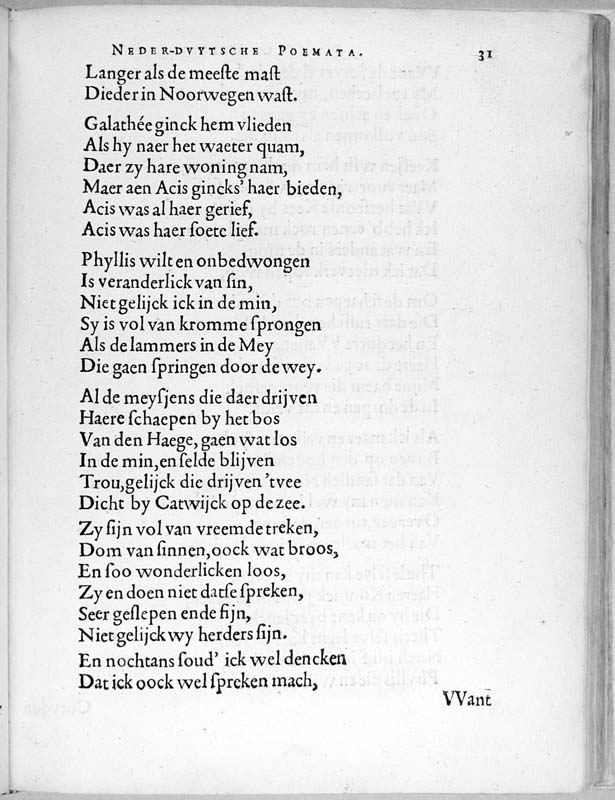 NEDER-DVYTSCHE POEMATA. 31
Langer als de meeſte maſt
Die der in Noorwegen waſt.
Galathée ginck hem vlieden
Als hy naer het waeter quam,
Daer zy hare woning nam,
Maer aen Acis gincks' haer bieden,
Acis was al haer gerief,
Acis was haer ſoete lief.
Phyllis wilt en onbedwongen
Is veranderlick van ſin,
Niet gelijck ick in de min,
Sy is vol van kromme ſprongen
Als de lammers in de Mey
Die gaen ſpringen door de wey.
Al de meyſjens die daer drijven
Haere ſchaepen by het bos
Van den Haege, gaen wat los
In de min, en ſelde blijven
Trou, gelijck die drijven 'tvee
Dicht by Catwijck op de zee.
Zy ſijn vol van vreemde treken,
Dom van ſinnen, oock wat broos,
En ſoo wonderlicken loos,
Zy en doen niet datſe ſpreken,
Seer geſlepen ende fijn,
Niet gelijck wy herders ſijn.
En nochtans ſoud' ick wel dencken
Dat ick oock wel ſpreken mach,
VVant